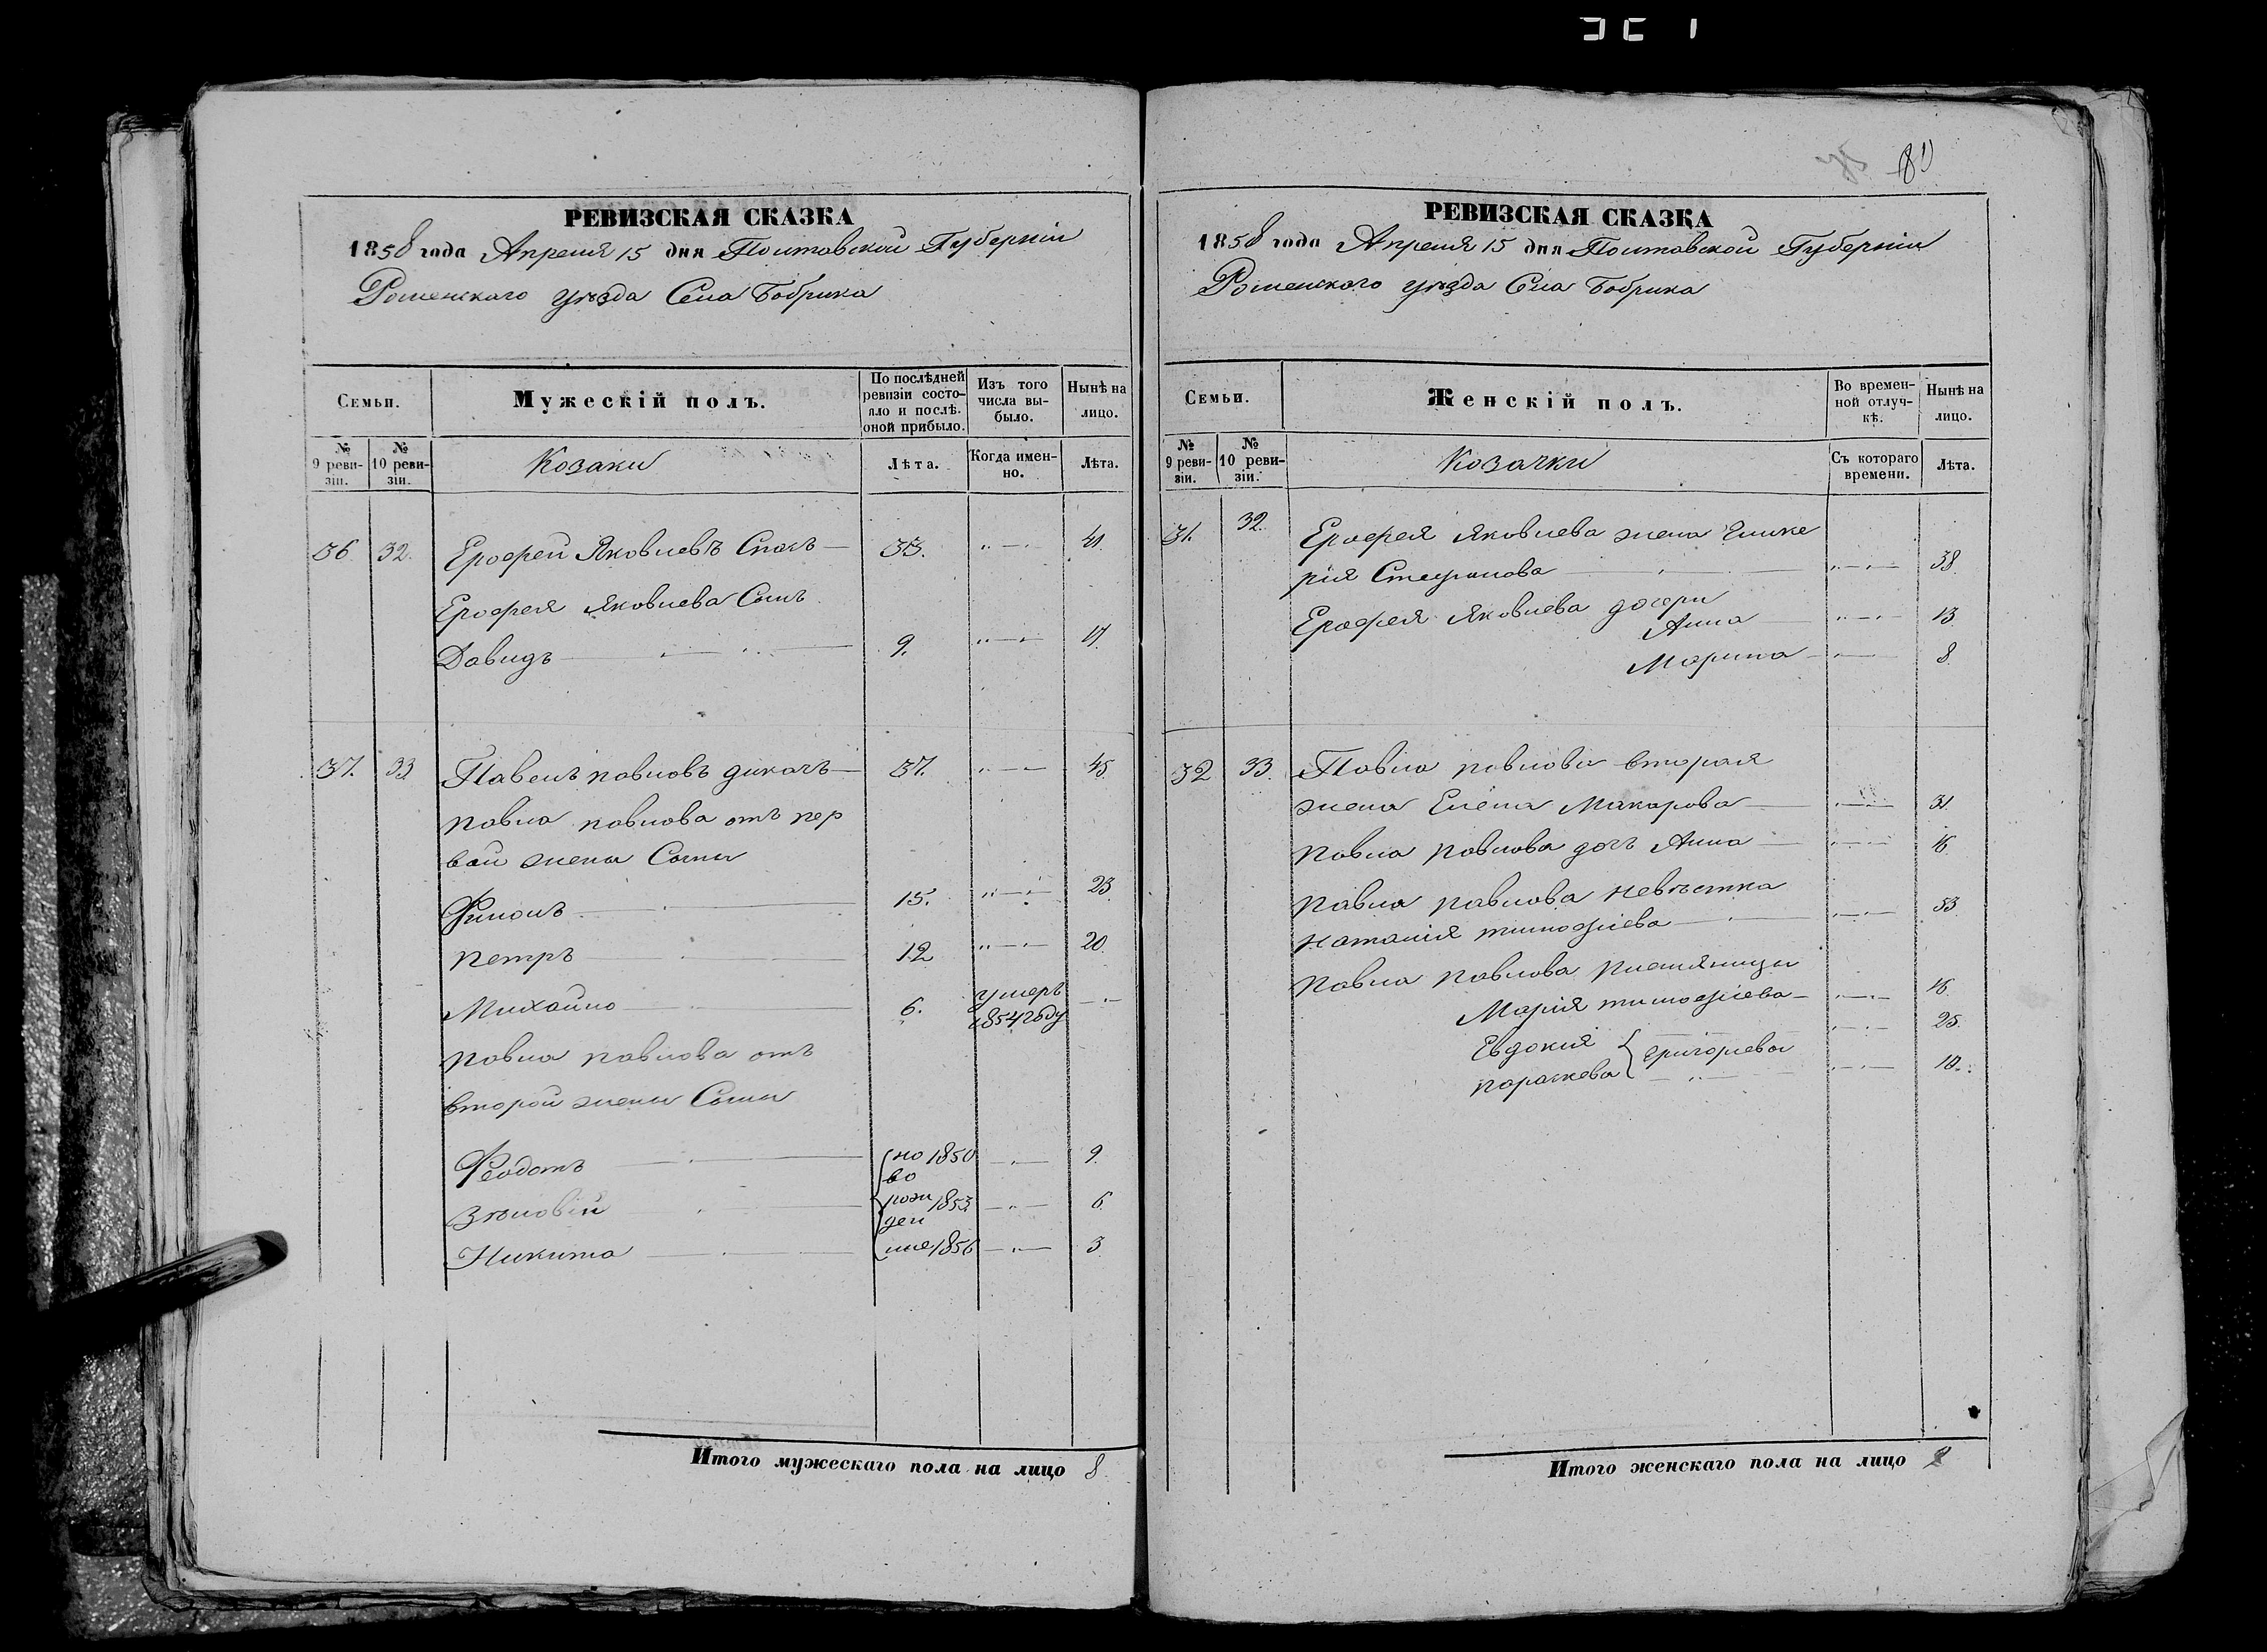 80
РЕВИЗСКАЯ СКАЗКА
1858 года Апреля 15 дня Полтавской Губерніи
Роменскаго уѣзда Села Бобрика
Семьи.
Мужескій полъ.
По послѣдней ревизіи состояло и послѣ оной прибыло.
Изъ того числа выбыло.
Нынѣ на лицо.
№ 9 ревизіи.
№ 10 ревизіи.
Козаки
Лѣта.
Когда именно.
Лѣта.
36 32. Ерофей Яковлевъ 33. 41.
Ерофея Яковлева Сынъ
Давидъ 9. 17.
37. 33 Павелъ павловъ дикачъ 37. 45
павла павлова отъ пер
вой жены Сыны
Филонъ 15. 23
петръ 12 20.
Михайло 6. умеръ 1854 году
павла павлова отъ
второй жены Сыны
Феодотъ но 1850 9.
во
Зѣновій рож 1853 6
ден
Никита ные 1856 3
Итого мужескаго пола на лицо 8.
РЕВИЗСКАЯ СКАЗКА
1858 года Апреля 15 дня Полтавской Губерніи
Роменского уѣзда Села Бобрика
Семьи.
Женскій полъ.
Во временной отлучкѣ.
Нынѣ на лицо.
№ 9 ревизіи.
№ 10 ревизіи.
Козачки
Съ котораго времени.
Лѣта.
31. 32. Ерофея Яковлева жена Глике
рия Стефанова 38
Ерофея Яковлева дочери
Анна 13
Марина 8.
32 33. Павла павлова вторая
жена Елена Макарова 31
павла павлова дочь Анна 16
павла павлова невѣстка
наталія тимофіева 53
павла павлова племяницы
Марія тимофіева 16.
Евдокія григорьевы 25.
параскева 10.
Итого женскаго пола на лицо